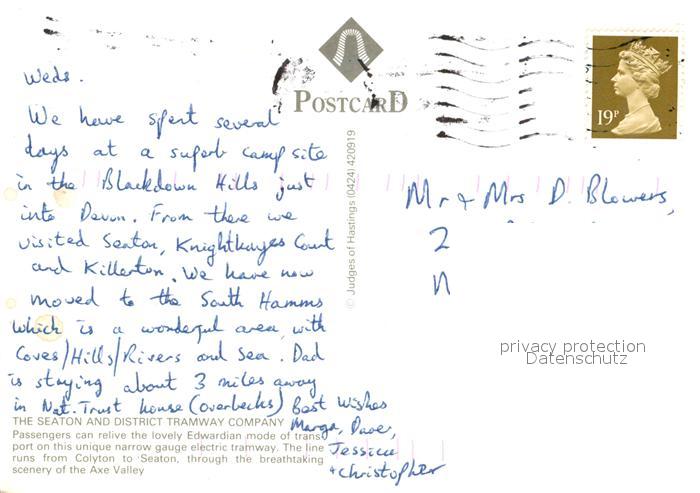 POSTCARD
19P
Weds.
We have spent several
days at a superb camp site
in the Blackdown Hills just
into Devon. From there we
visited Seaton, Knightshayes Court
and Killerton. We have now
moved to the South Hamms
which is a wonderful area with
Coves/Hills/Rivers and Sea. Dad
is staying about 3 miles away
in Nat. Trust house (overbecks) Best Wishes
Marga, Dave,
Jessica
+ Christopher
THE SEATON AND DISTRICT TRAMWAY COMPANY
Passengers can relive the lovely Edwardian mode of trans-
port on this unique narrow gauge electric tramway. The line
runs from Colyton to Seaton, through the breathtaking
scenery of the Axe Valley
© Judges of Hastings (0424) 420919
Mr & Mrs D. Blowers,
2
privacy protection
Datenschutz